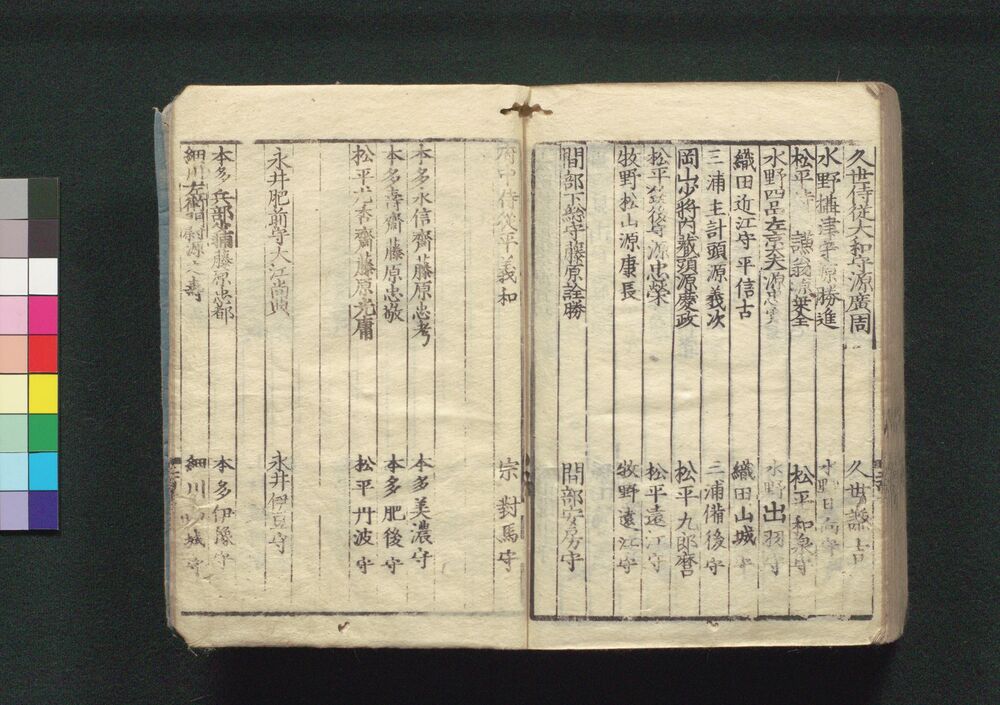 久世侍従大和守源廣周 久世讃吉
水野攝津守源勝進 水野日向守
松平 守 譲翁源乗全 松平和泉守
水野四品左京大夫源忠寛 水野出羽守
織田近江守平信古 織田山城守
三浦主計頭源義次 三浦備後守
岡山少将内蔵頭源慶政 松平九郎麿
松平 後守源忠榮 松平遠江守
牧野松山源康長 牧野遠江守
間部下総守藤原詮勝 間部安房守
府中侍従平義和 宗對馬守
本多水信齋藤原忠考 本多美濃守
本多喜齋藤原忠敬 本多肥後守
松平 香齋藤原光庸 松平丹波守
永井肥前守大江尚典 永井伊豆守
本多兵部少輔藤原忠都 本多伊豫守
細川 源 壽 細川 城守